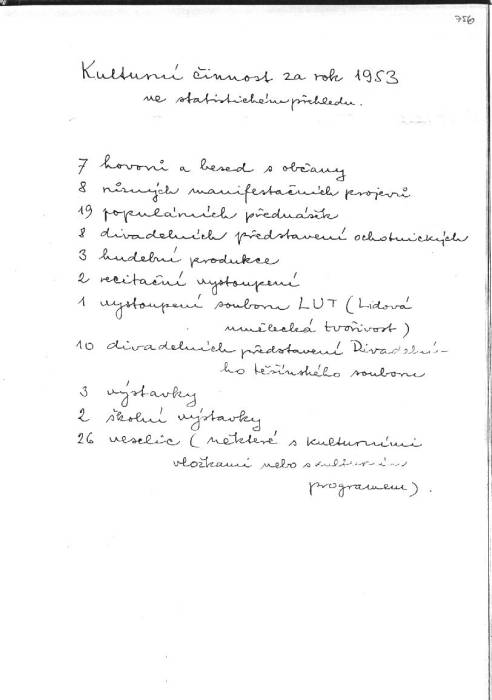 756
Kulturní činnost za rok 1953
ve statistickém přehledu.
7 hovorů a besed s občany
8 různých manifestačních projevů
19 populárních přednášek
8 divadelních představení ochotnických
3 hudební produkce
2 recitační vystoupení
1 vystoupení souboru LUT (Lidová
umělecká tvořivost)
10 divadelních představení Divadelní-
ho těšínského souboru
3 výstavky
2 školní výstavky
26 veselic (některé s kulturními
vložkami nebo s
programem).